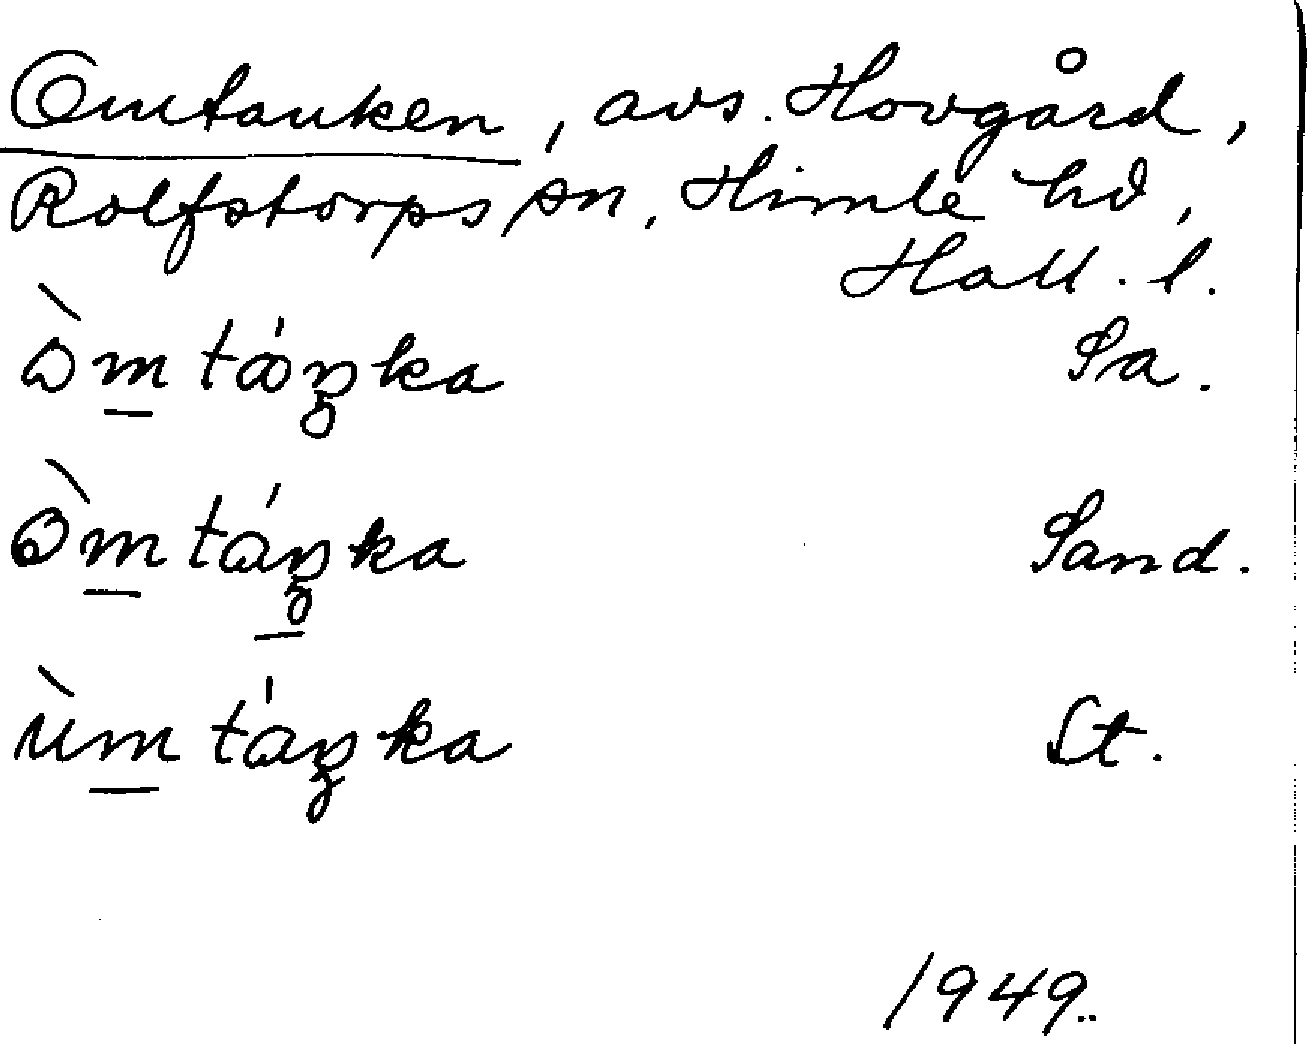 Omtanken, avs. Hovgård,
Rolfstorps sn, Himle hd,
Hall. l.
òm táŋka Sa.
òm táŋka Sand.
ùm táŋka St.
1949.